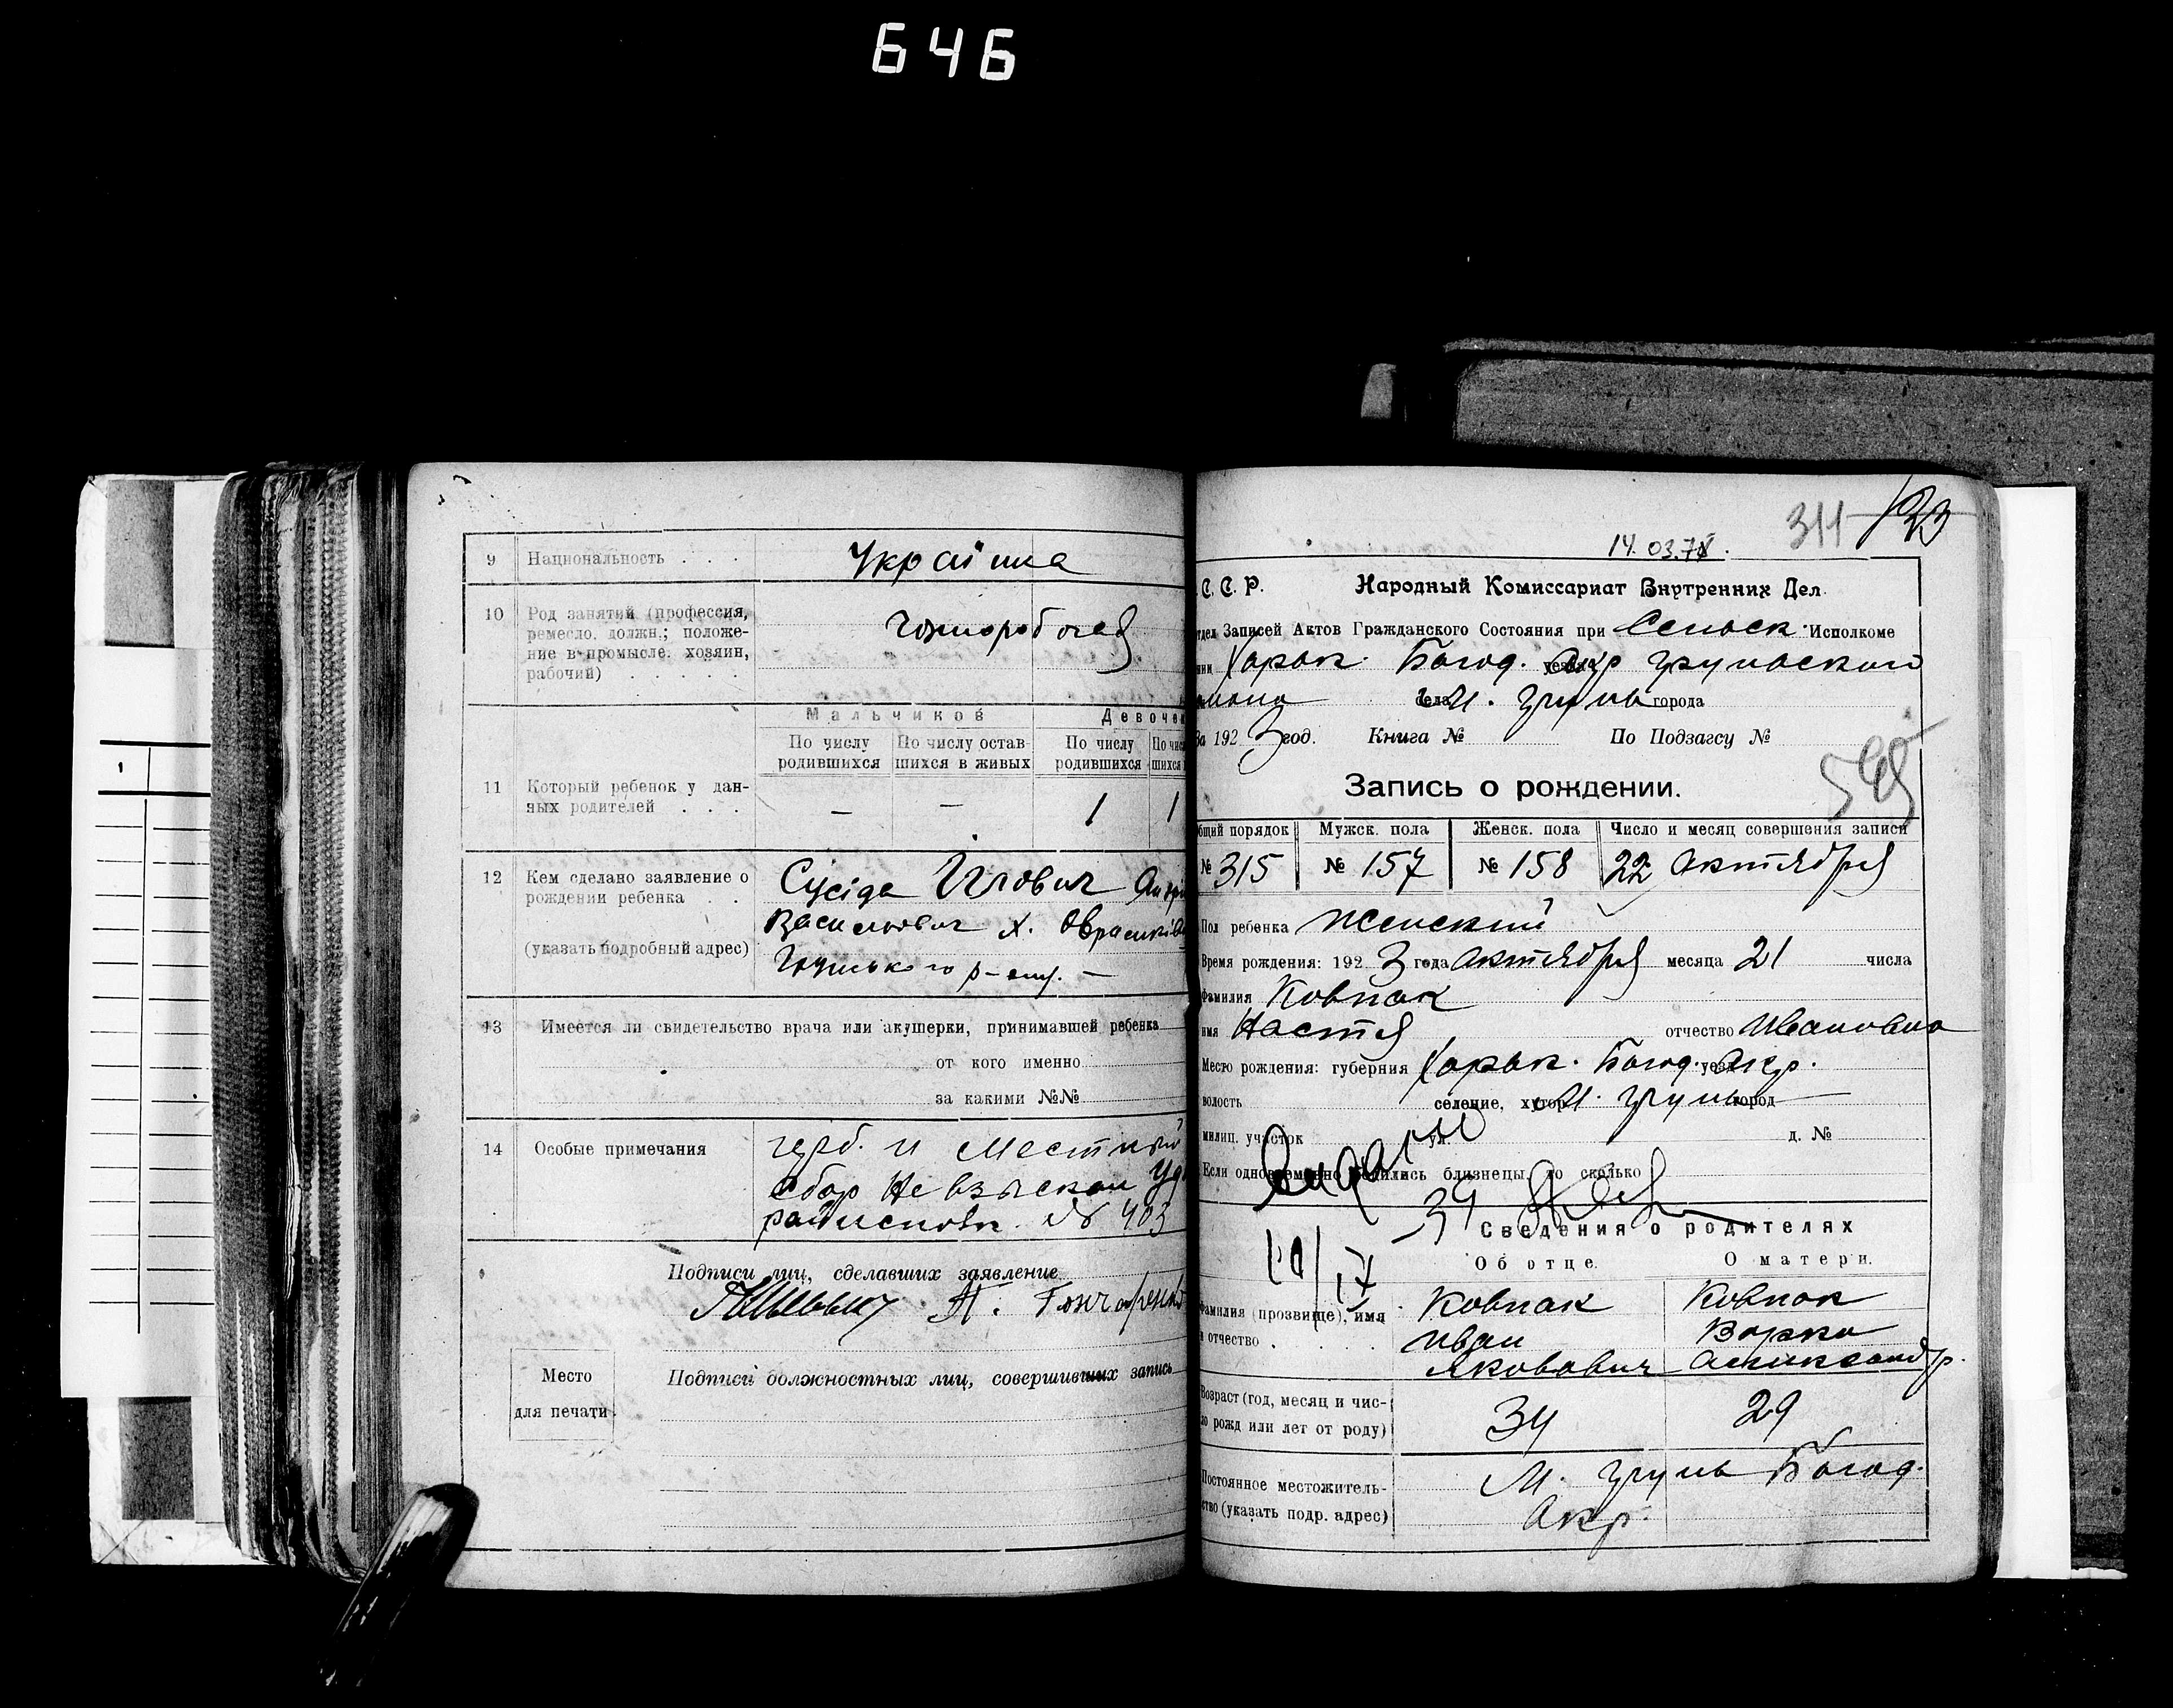 646
9 Национальность . . . Украінка
10 Род занятий (профессия,
ремесло, должн.; положе-
ние в промысле. хозяин,
рабочий) . . . . .
Мальчиков Девочек
По числу родившихся По числу остав-шихся в живых По числу родившихся
11 Который ребенок у дан-
ных родителей . . . — — 1 1
12 Кем сделано заявление о
рождении ребенка . .
(указать подробный адрес)
Сусіда
Васильович х.
13 Имеется ли свидетельство врача или акушерки, принимавшей ребенка
от кого именно
за какими №№
14 Особые примечания герб. и местный
сбор не взыскан
№ 403
Подписи лиц, сделавших заявление
П. Гончаренко
Место
для печати.
Подписи должностных лиц, совершивших запись
14.03.78.
311 123
С. С. Р. Народный Комиссариат Внутренних Дел.
отдел Записей Актов Гражданского Состояния при Сельск. Исполкоме
Харьк. Богод. окр Грунского
села м. Грунь города
За 1923 год. Книга № По Подзагсу №
Запись о рождении.
Общий порядок Мужск. пола Женск. пола Число и месяц совершения записи
№ 315 № 157 № 158 22 октября
Пол ребенка женский
Время рождения: 1923 года октября месяца 21 числа
Фамилия Ковпак
имя Настя отчество Ивановна
Место рождения: губерния Харьк. Богод. уезд окр.
волость селение, хутор м. Грунь город
милиц. участок ул. д. №
Если одновременно родились близнецы, то сколько
Сведения о родителях
Об отце. О матери.
Фамилия (прозвище), имя
и отчество . . . .
Ковпак
Иван
Яковович
Ковпак
Варка
Александр.
Возраст (год, месяц и чис-
ло рожд или лет от роду) 34 29
Постоянное местожитель-
ство (указать подр. адрес)
М. Грунь Богод.
Окр.